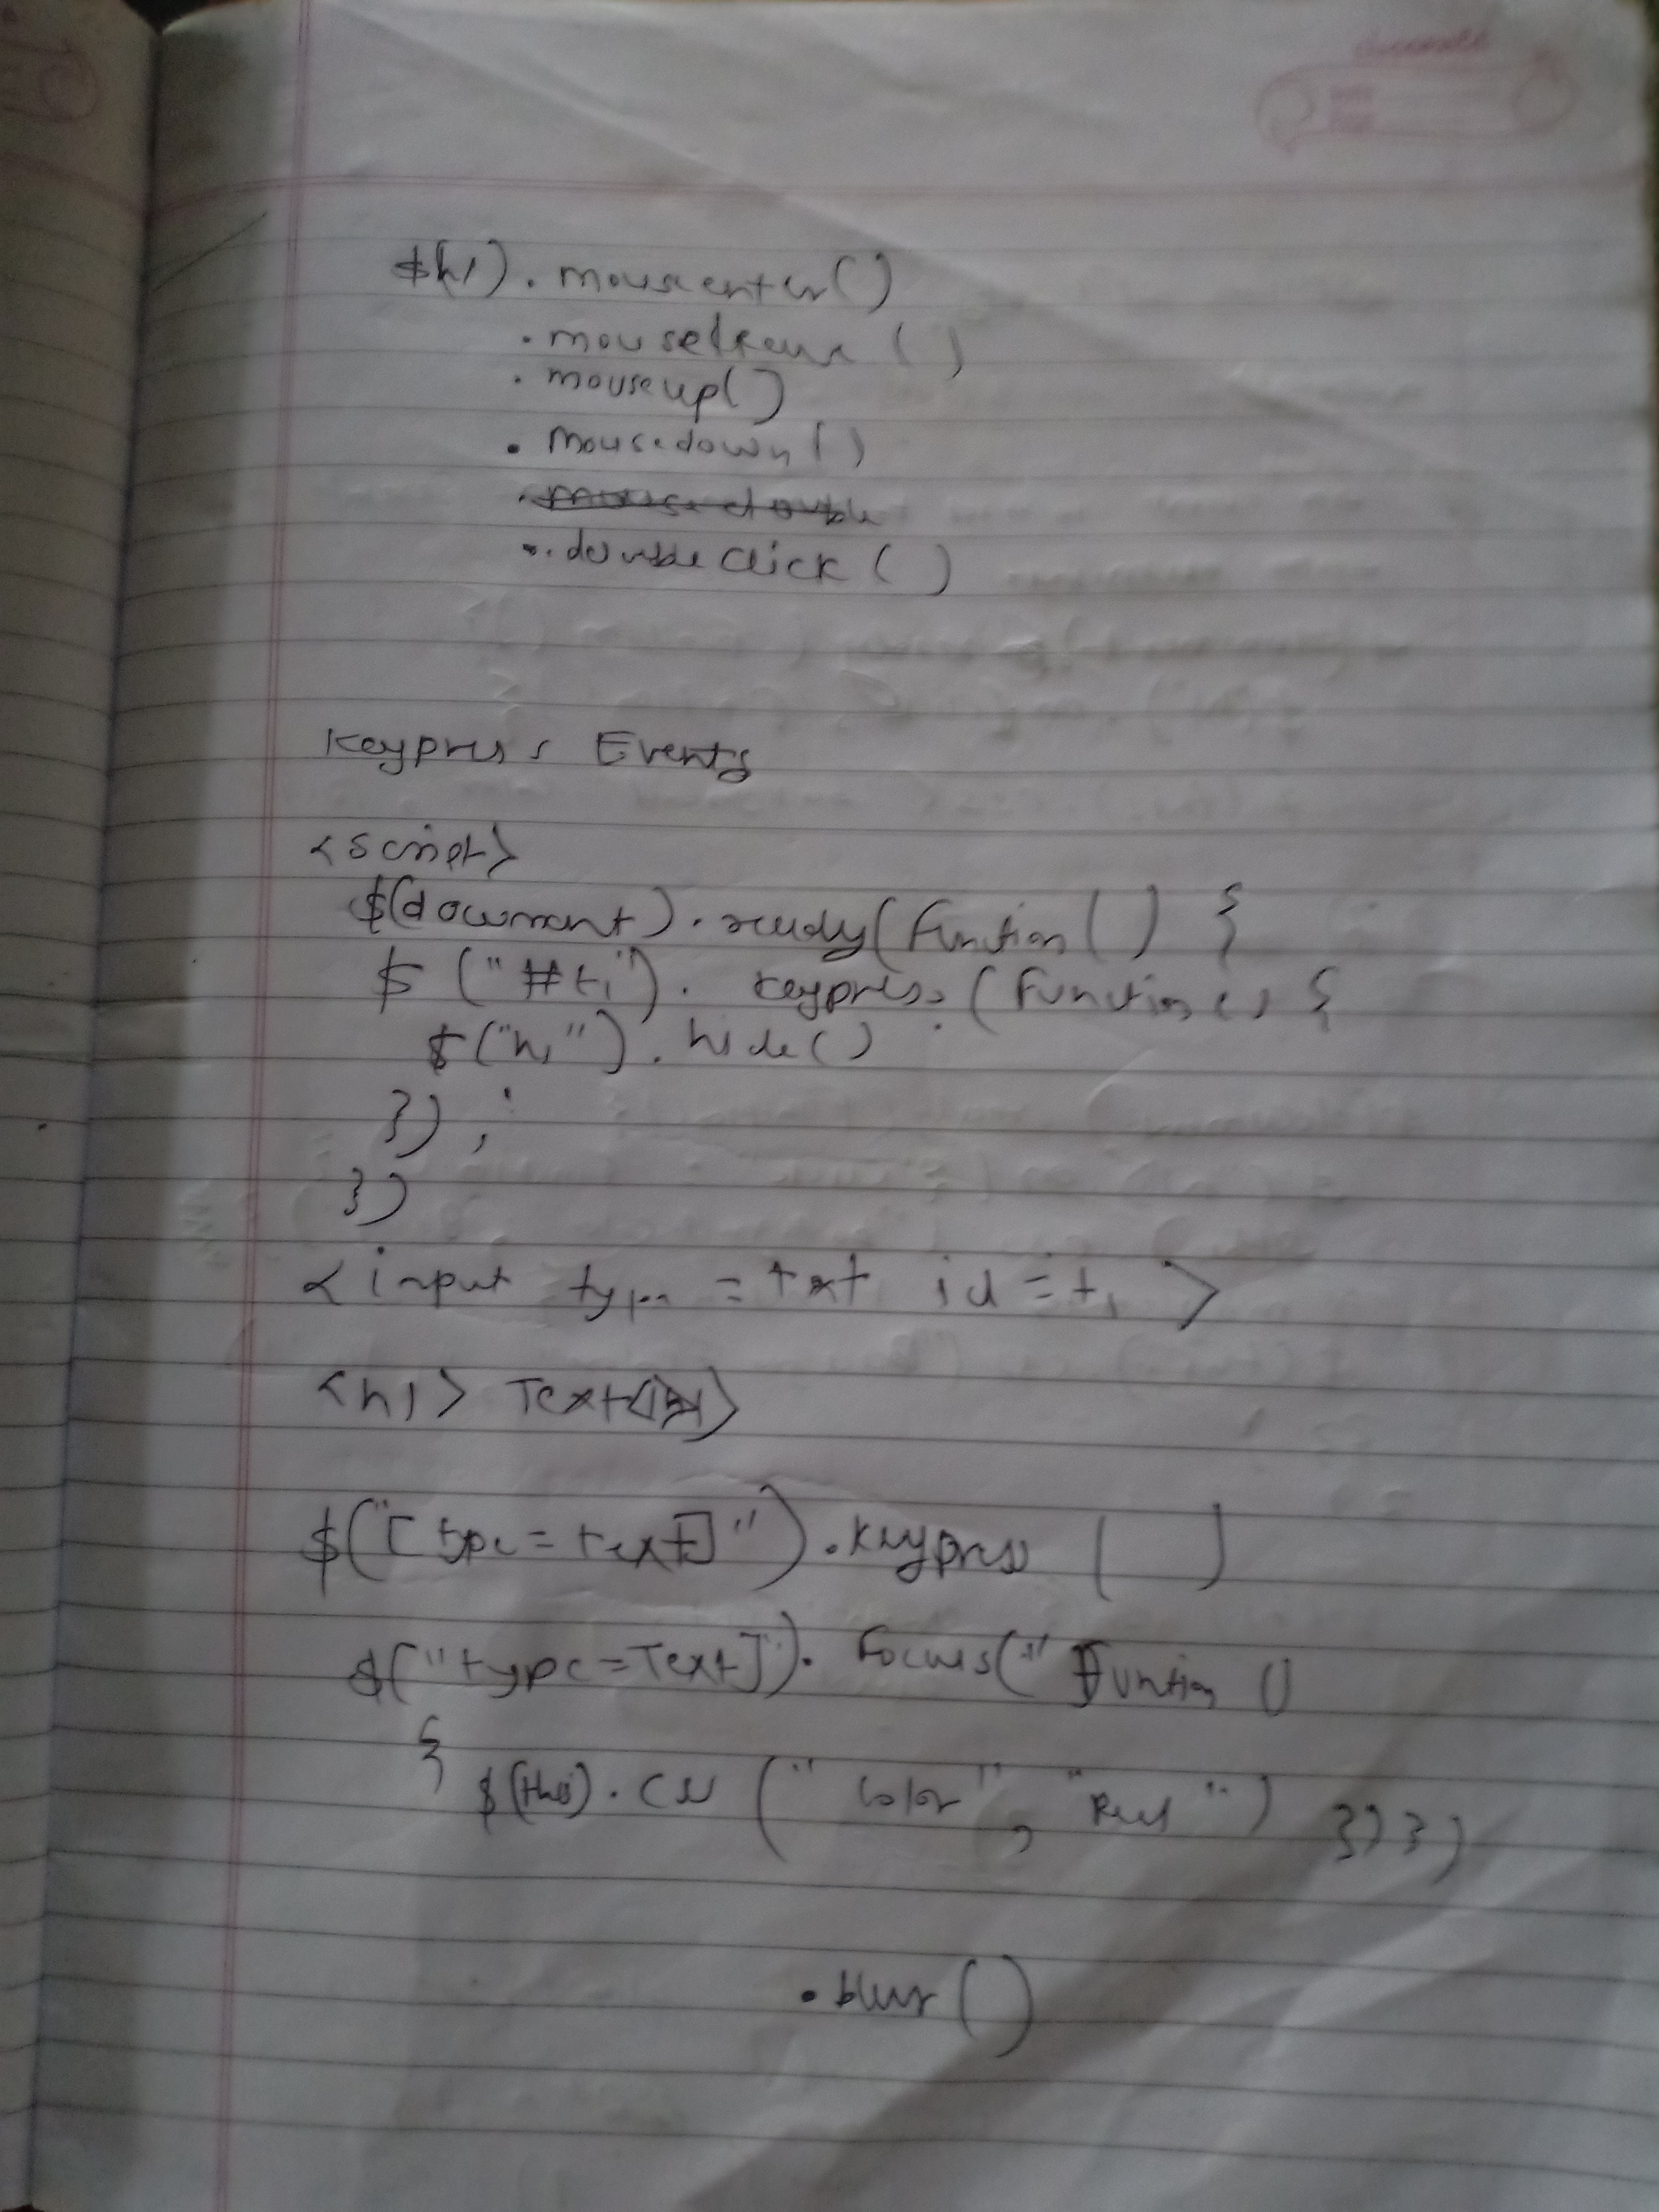 $(h1).mouseenter()
.mouseleave ()
.mouseup()
.mousedown()
.mouse double
.double click ()
Keypress Events
<script>
$(document).ready(function() {
$ ("#t1"). keypress (function() {
$("h1").hide()
});
})
<input type = text id = t1 >
<h1> Text</h1>
$("[type=text]").keypress ( )
$("type=Text]"). Focus(" Function ()
{ $(this).css (" Color", "Red") })})
.blur()